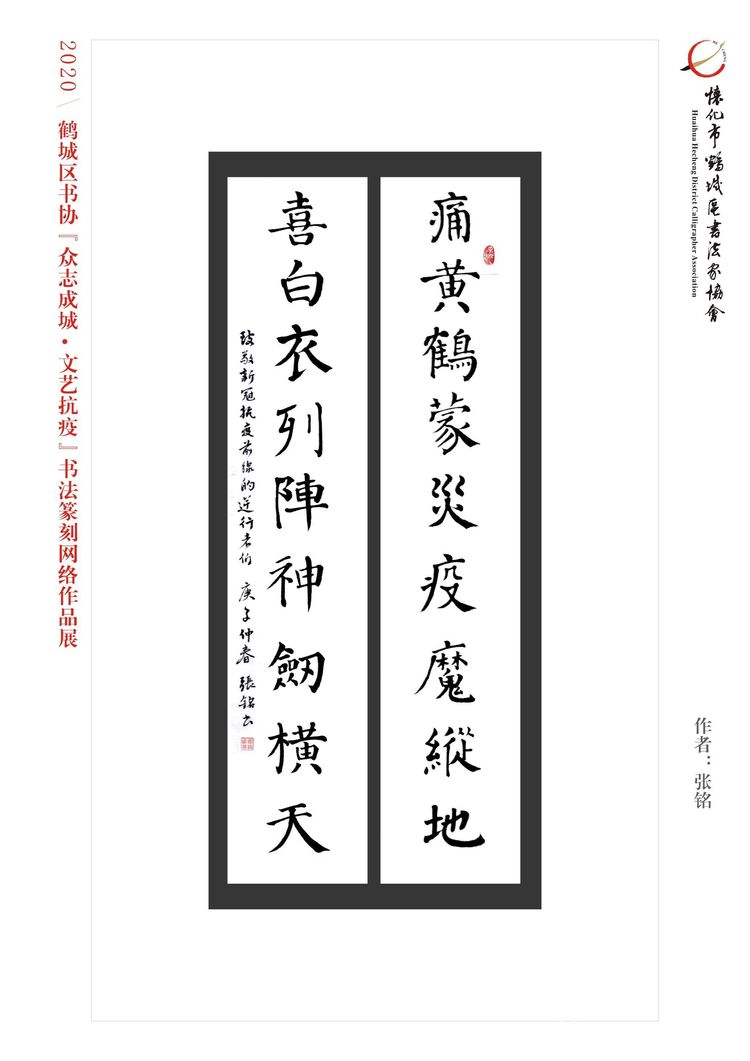 懷化市鶴城區書法家協會
Huaihua Hecheng District Calligrapher Association
痛黄鶴蒙災疫魔縱地
喜白衣列陣神劒橫天
致敬新冠抗疫前線的逆行者们 庚子仲春 張銘书
作者：张铭
2020 鹤城区书协『众志成城·文艺抗疫』书法篆刻网络作品展